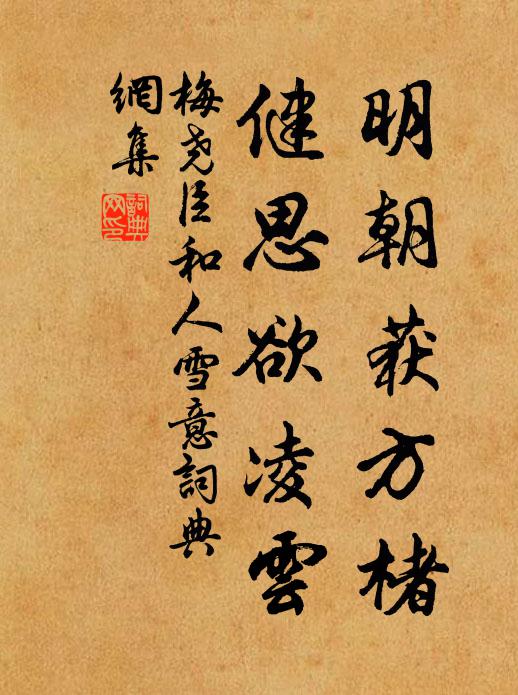 明朝荻方楮
健思欲凌雲
梅尧臣和人雪意詞典
網集
詞典网印